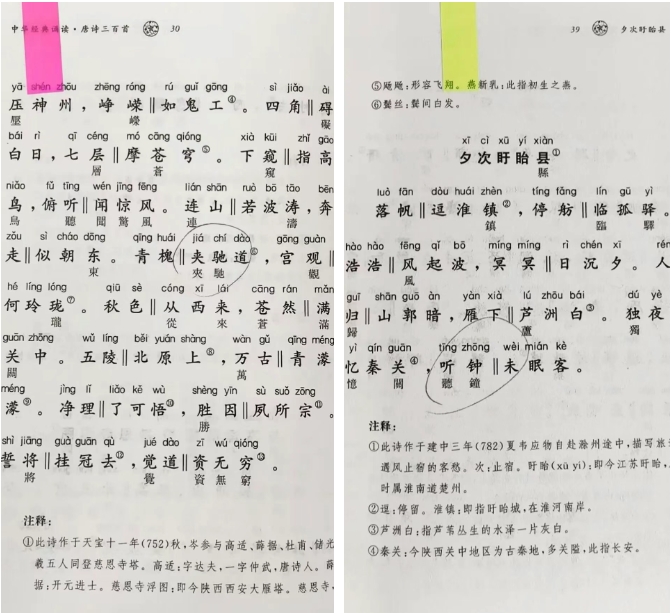 中华经典诵读·唐诗三百首 30
yā shén zhōu zhēng róng rú guǐ gōng sì jiǎo ài
压神州，峥嵘‖如鬼工④。四角‖碍
壓 嶸 礙
bái rì qī céng mó cāng qióng xià kuī zhǐ gāo
白日，七层‖摩苍穹⑤。下窥‖指高
層 蒼 窺
niǎo fǔ tīng wén jīng fēng lián shān ruò bō tāo bēn
鸟，俯听‖闻惊风。连山‖若波涛，奔
鳥 聽 聞 驚 風 連 濤
zǒu sì cháo dōng qīng huái jiá chí dào gōng guàn
走‖似朝东。青槐‖夹驰道⑥，宫观‖
東 夾 馳 觀
hé líng lóng qiū sè cóng xī lái cāng rán mǎn
何玲珑⑦。秋色‖从西来，苍然‖满
瓏 從 來 蒼 滿
guān zhōng wǔ líng běi yuán shàng wàn gǔ qīng méng
关中。五陵‖北原上⑧，万古‖青濛
關 萬
méng jìng lǐ liǎo kě wù shèng yīn sù suǒ zōng
濛⑨。净理‖了可悟⑩，胜因‖夙所宗⑪。
勝
shì jiāng guà guān qù jué dào zī wú qióng
誓将‖挂冠去⑫，觉道‖资无穷⑬。
將 覺 資 無 窮
注释：
①此诗作于天宝十一年(752)秋，岑参与高适、薛据、杜甫、储光
羲五人同登慈恩寺塔。高适：字达夫，一字仲武，唐诗人。薛
据：开元进士。慈恩寺浮图：即今陕西西安大雁塔。慈恩寺，
39 夕次盱眙县
⑤飏飏：形容飞翔。燕新乳：此指初生之燕。
⑥鬓丝：鬓间白发。
xī cì xū yí xiàn
夕次盱眙县①
縣
luò fān dòu huái zhèn tíng fǎng lín gū yì
落帆‖逗淮镇②，停舫‖临孤驿。
鎮 臨 驛
hào hào fēng qǐ bō míng míng rì chén xī rén
浩浩‖风起波，冥冥‖日沉夕。人
風
guī shān guō àn yàn xià lú zhōu bái dú yè
归‖山郭暗，雁下‖芦洲白③。独夜
歸 蘆 獨
yì qín guān tīng zhōng wèi mián kè
忆秦关④，听钟‖未眠客。
憶 關 聽 鐘
注释：
①此诗作于建中三年(782)夏韦应物自赴滁州途中，描写旅
遇风止宿的客愁。次：止宿。盱眙(xū yí)：即今江苏盱眙，
时属淮南道楚州。
②逗：停留。淮镇：即指盱眙城，在淮河南岸。
③芦洲白：指芦苇丛生的水泽一片灰白。
④秦关：今陕西关中地区为古秦地，多关隘，此指长安。